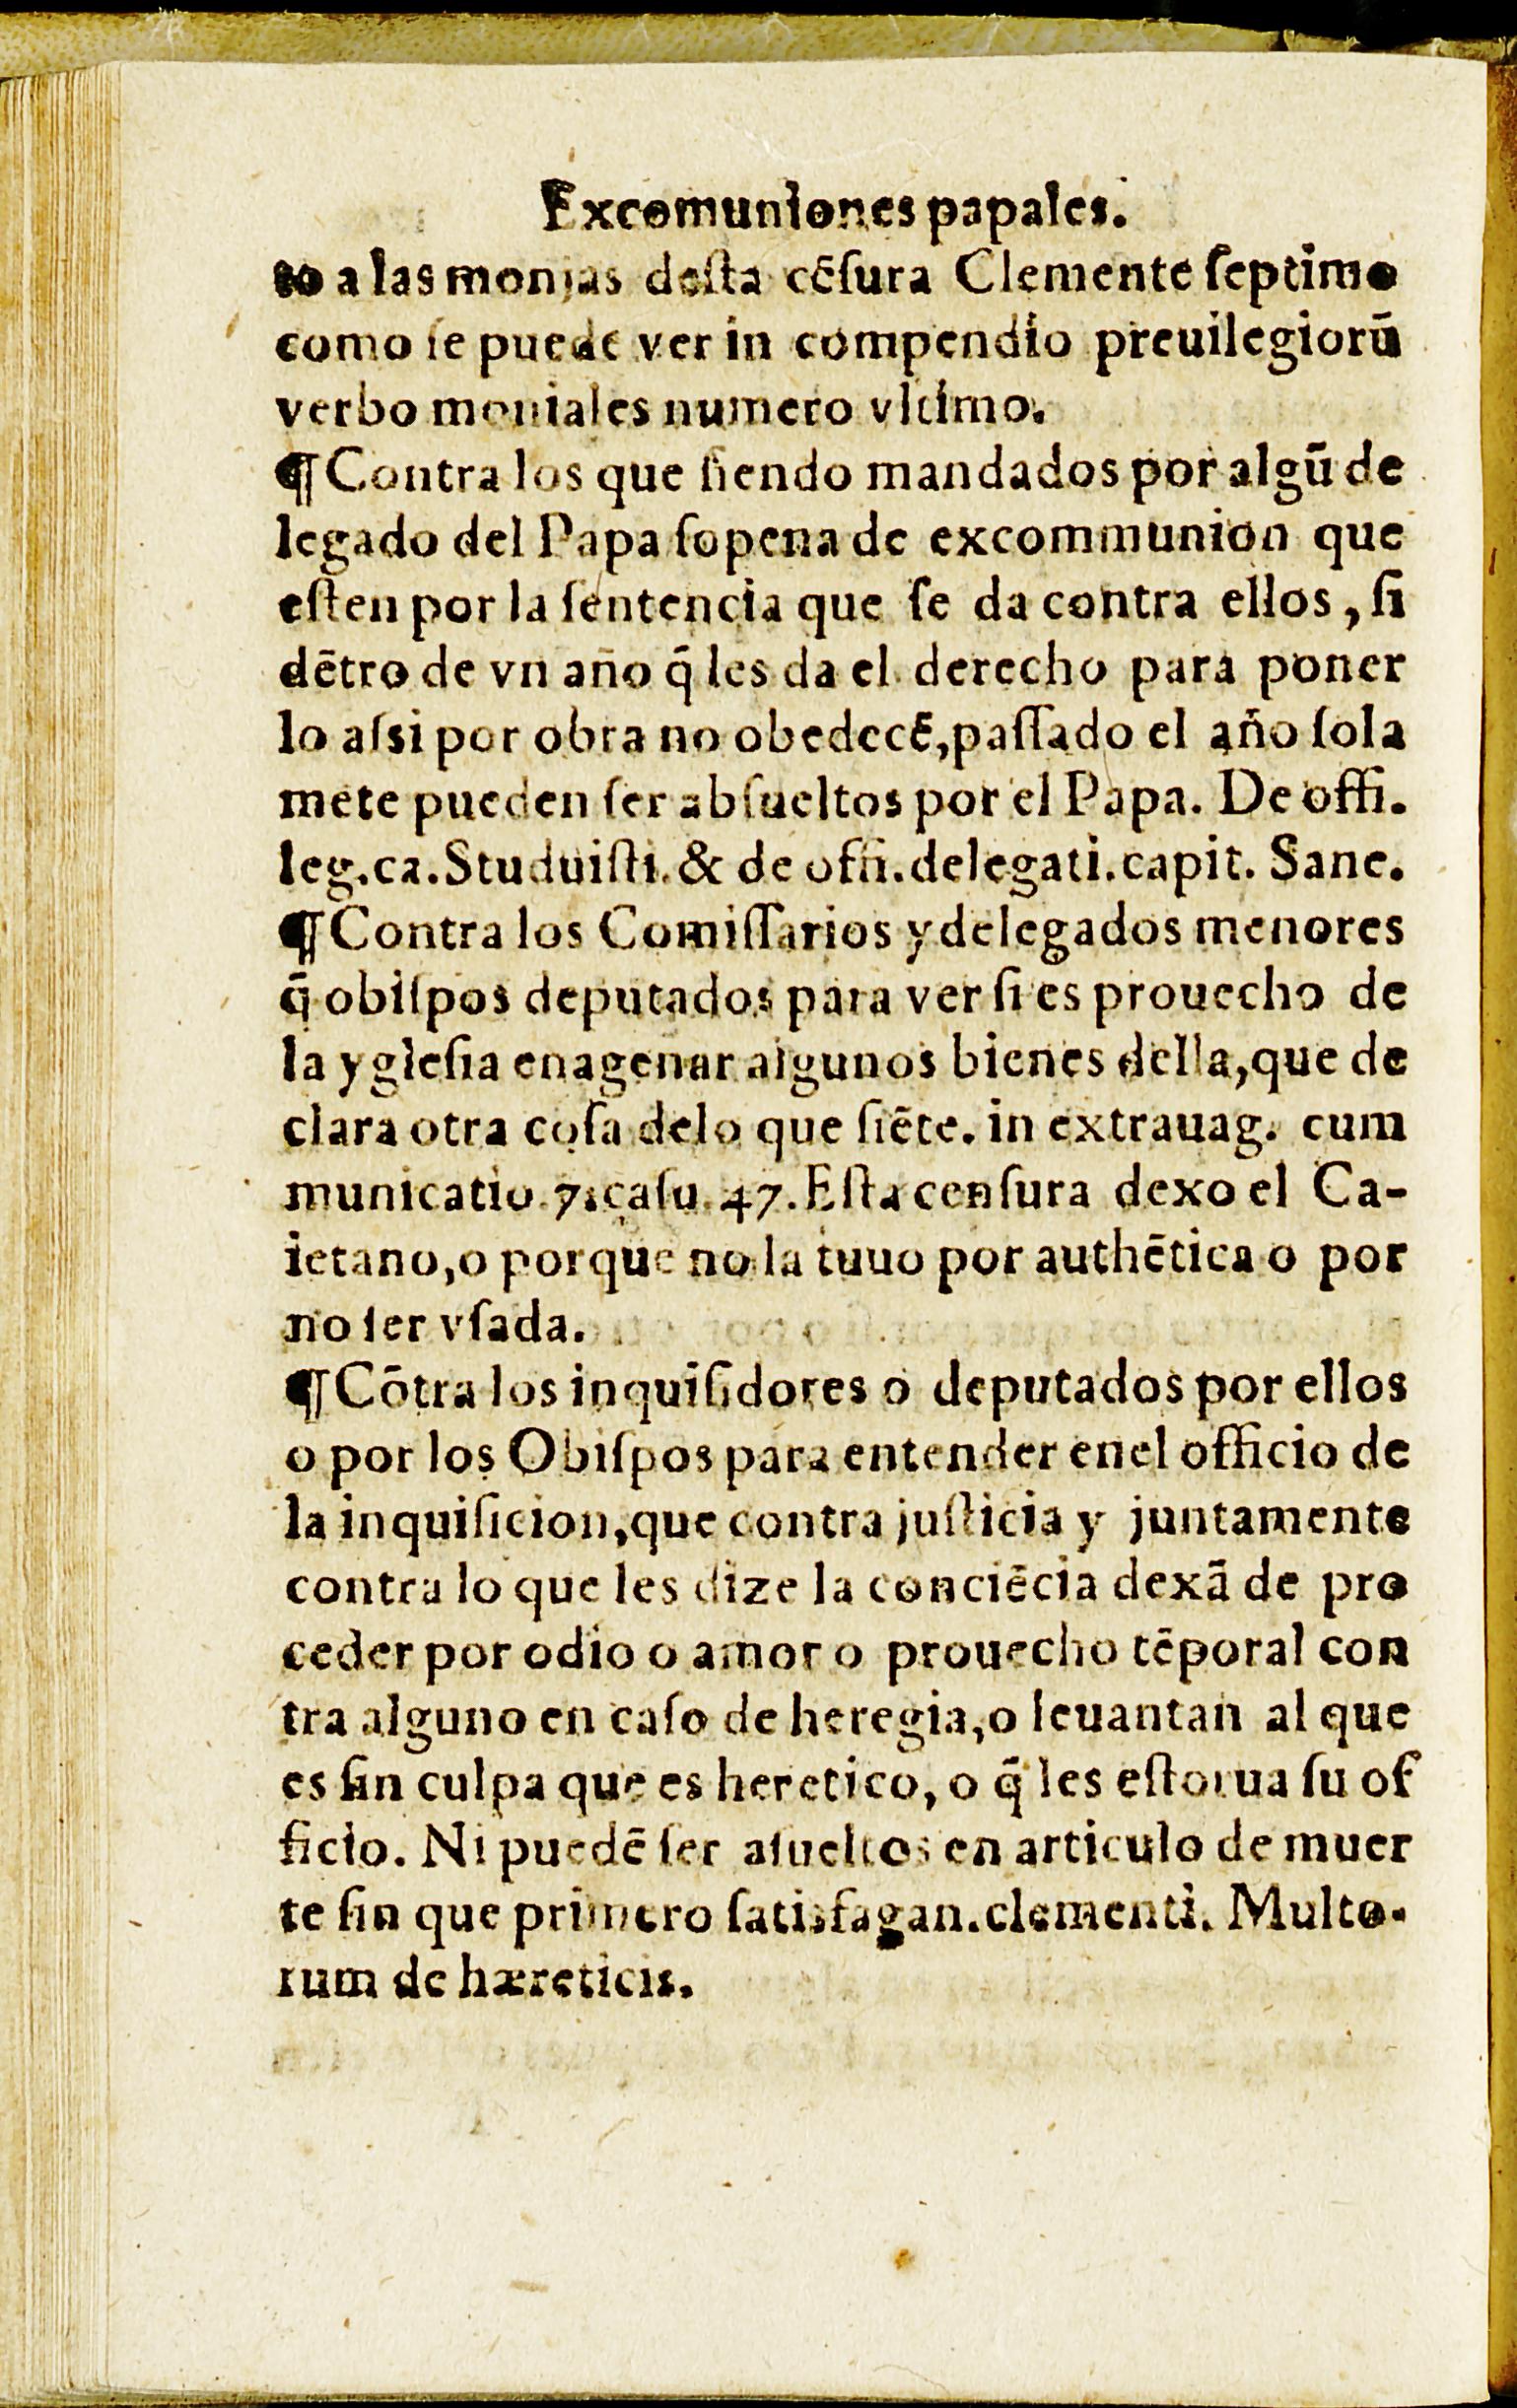 Excomuniones papales.
to a las monjas deſta cẽſura Clemente ſeptimo
como ſe puede ver in compendio preuilegiorũ
verbo moniales numero vltimo.
¶ Contra los que ſiendo mandados por algũ de
legado del Papa ſopena de excommunion que
eſten por la ſentencia que ſe da contra ellos, ſi
dẽtro de vn año q̃ les da el derecho para poner
lo aſsi por obra no obedecẽ, paſſado el año ſola
mete pueden ſer abſueltos por el Papa. De offi.
leg. ca. Studuiſti. & de offi. delegati. capit. Sane.
¶ Contra los Comiſſarios y delegados menores
q̃ obiſpos deputados para ver ſi es prouecho de
la ygleſia enagenar algunos bienes della, que de
clara otra coſa delo que ſiẽte. in extrauag. cum
municatio. 7. caſu. 47. Eſta cenſura dexo el Ca-
ietano, o porque no la tuuo por authẽtica o por
no ſer vſada.
¶ Cõtra los inquiſidores o deputados por ellos
o por los Obiſpos para entender enel officio de
la inquiſicion, que contra juſticia y juntamente
contra lo que les dize la conciẽcia dexã de pro
ceder por odio o amor o prouecho tẽporal con
tra alguno en caſo de heregia, o leuantan al que
es ſin culpa que es heretico, o q̃ les eſtorua ſu of
ficio. Ni puedẽ ſer aſueltos en articulo de muer
te ſin que primero ſatisfagan. clementi. Multo-
rum de hæreticis.